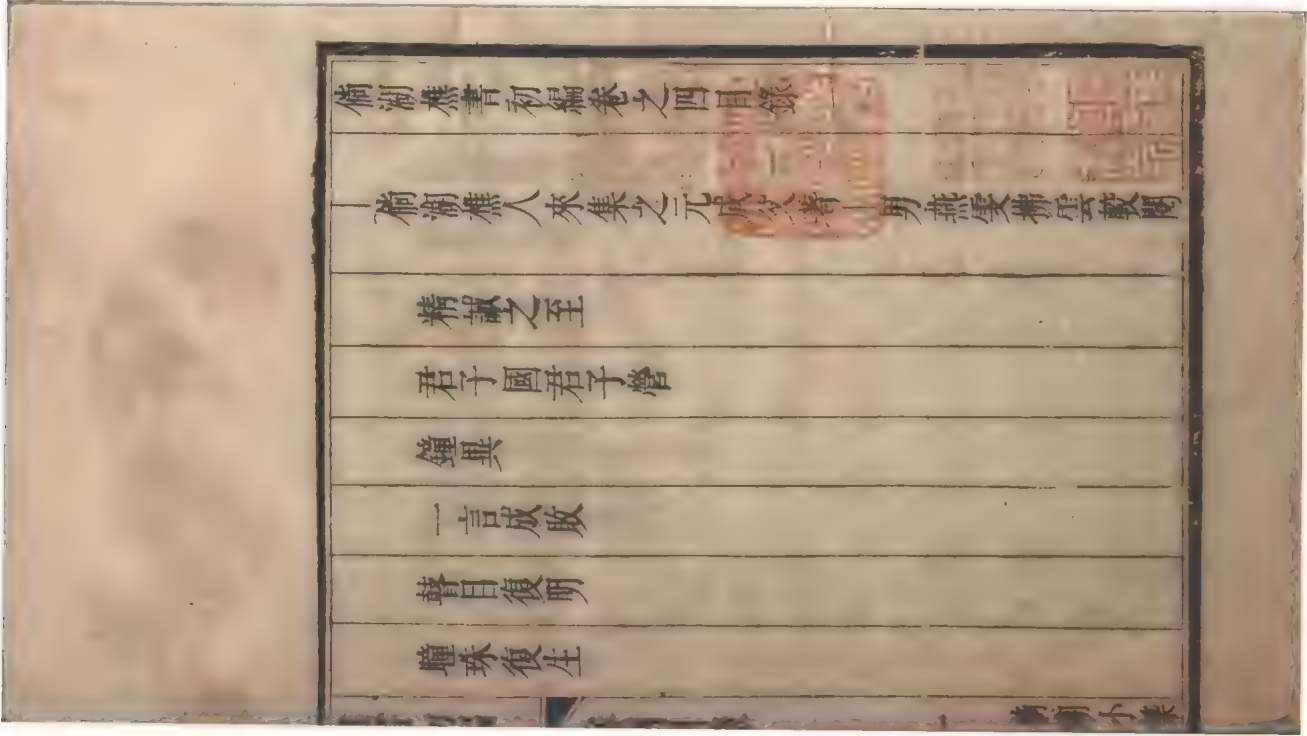 倘湖樵書初編卷之四目錄
倘湖樵人來集之元成父著 男燕雯雲較閱
精誠之至
君子國君子營
鐘異
一言成敗
瞽目復明
瞳珠復生
倘湖小築